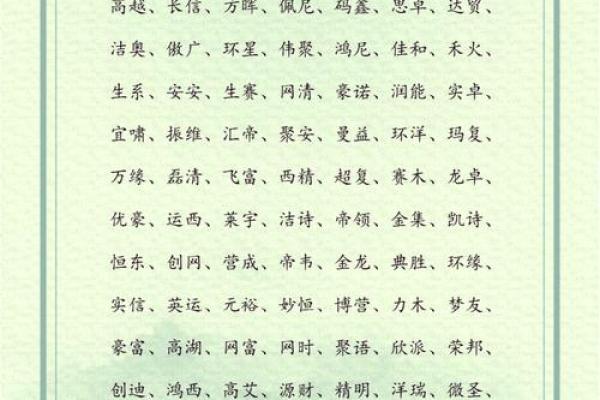 高越、长信、方晖、佩尼、码鑫、思卓、达贸、
洁奥、傲广、环星、伟聚、鸿尼、佳和、禾火、
生系、安安、生赛、网清、豪诺、润能、实卓、
宜啸、振维、汇帝、聚安、曼益、环洋、玛复、
万缘、磊清、飞富、西精、超复、赛木、龙卓、
优豪、运西、莱宇、洁诗、帝领、金集、凯诗、
恒东、创网、营成、帝韦、金龙、典胜、环缘、
实信、英运、元裕、妙恒、博营、力木、梦友、
豪富、高湖、网富、网时、聚语、欣派、荣邦、
创迪、鸿西、高艾、源财、精明、洋瑞、微圣、